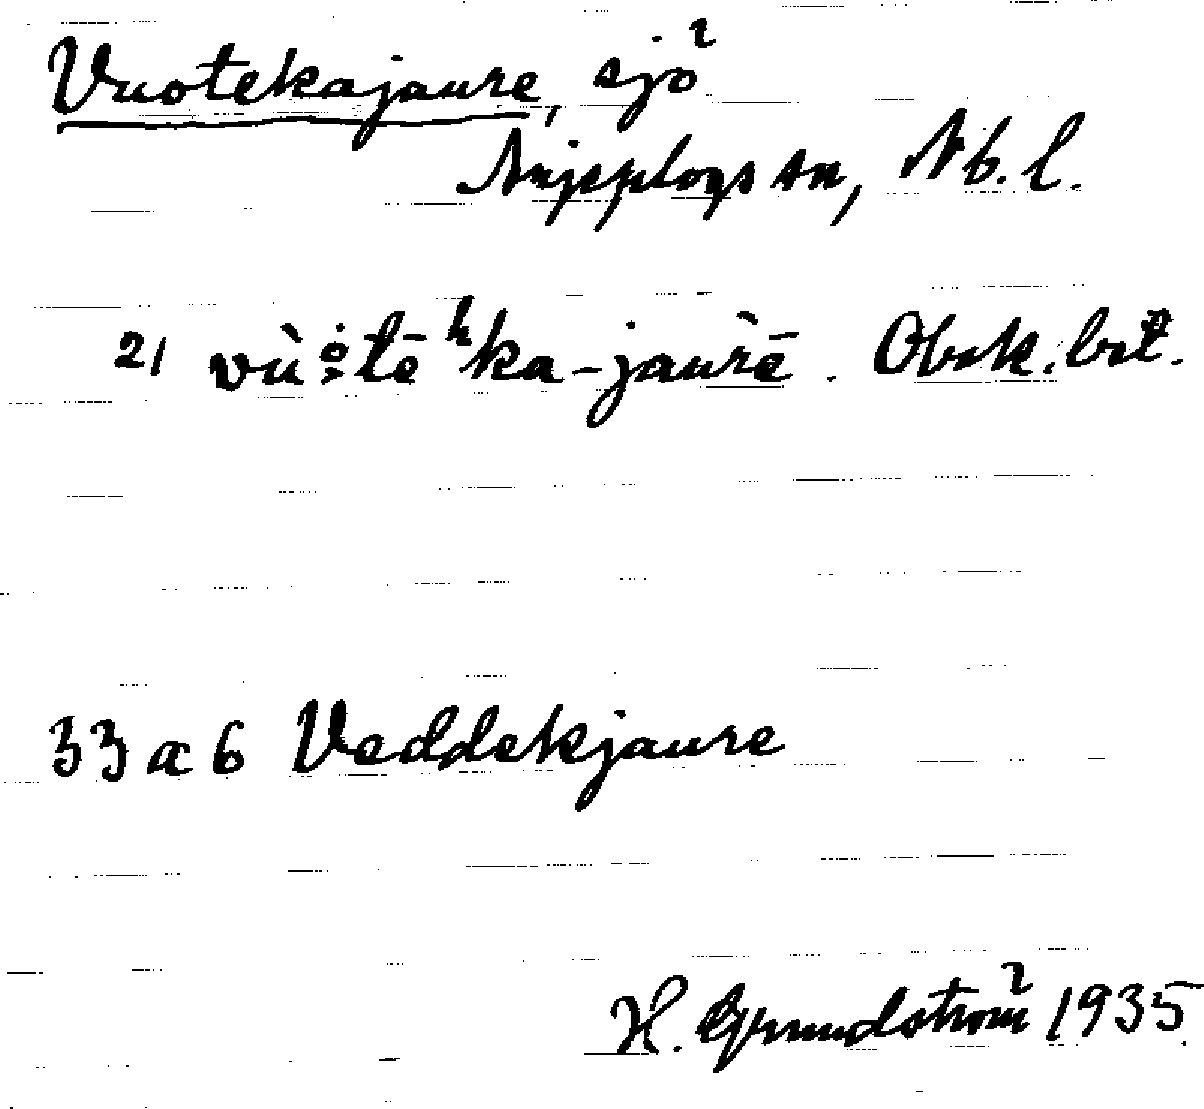 Vuotekajaure, sjö
Arjeplogs sn, Nb. l.
2/ vù̀o̭tē ʰka-jaur̀ē. Obsk. bet.
33 a 6 Veddekjaure
H. Grundström 1935.